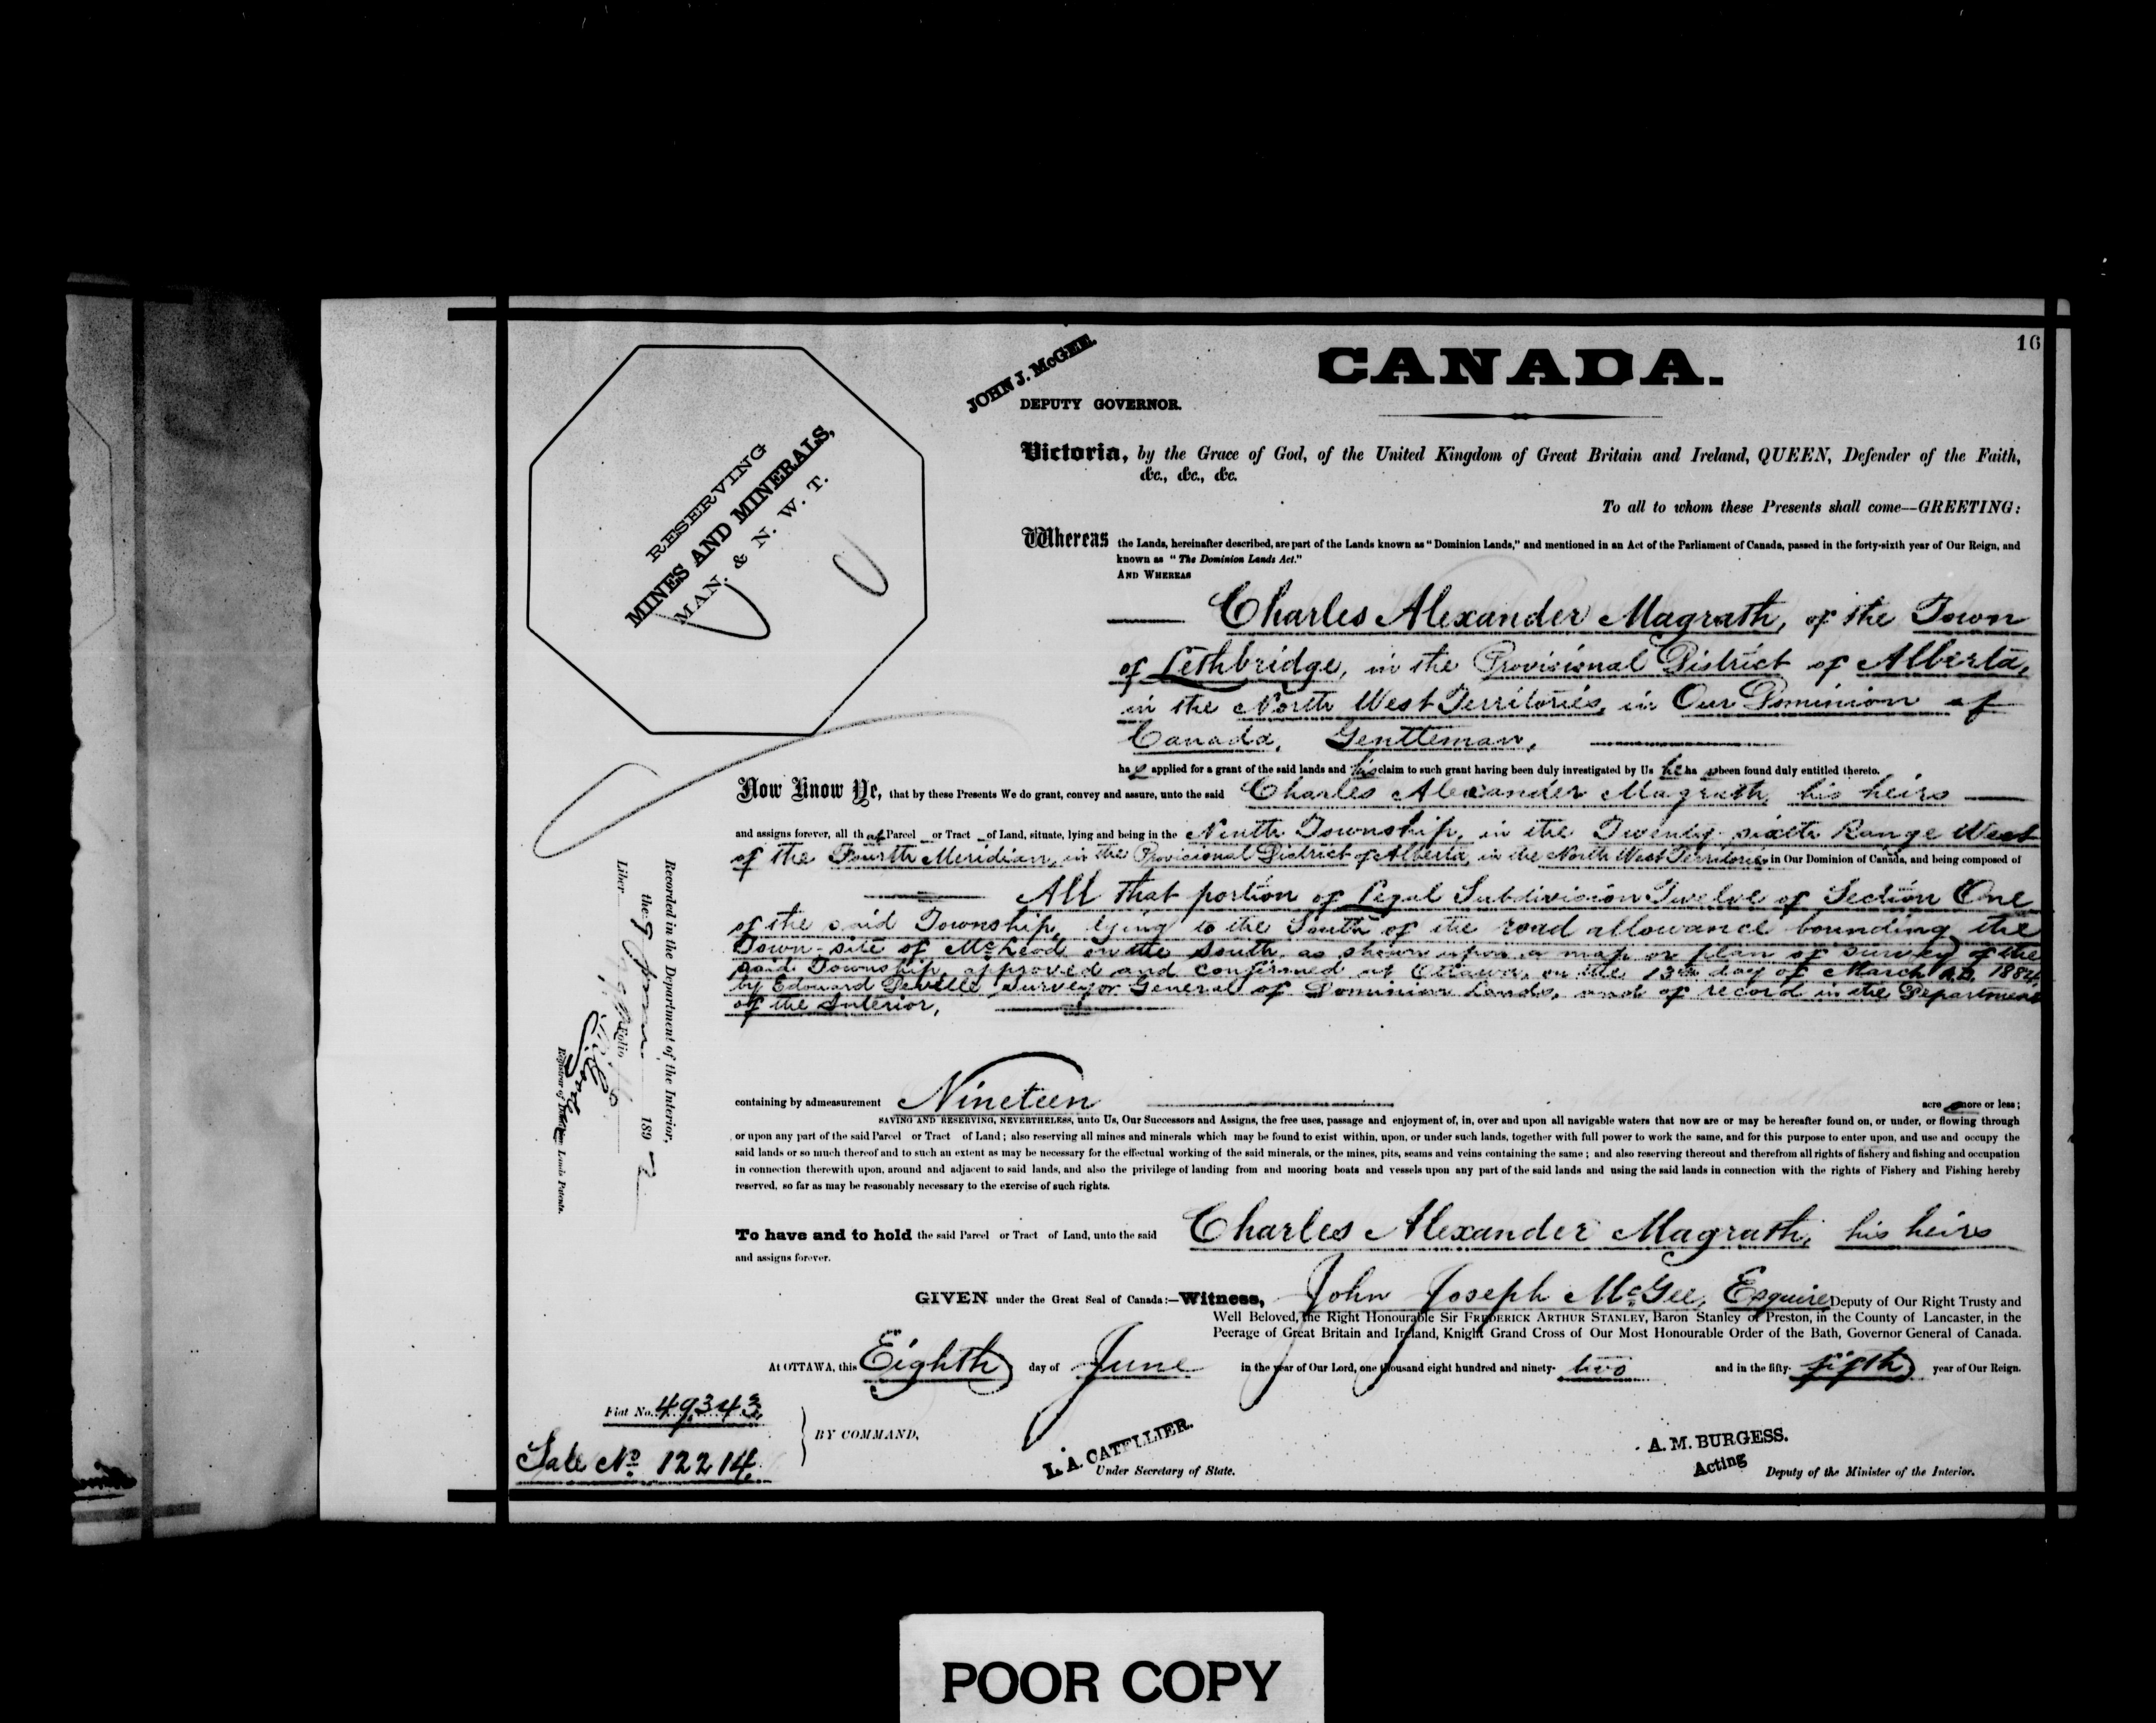 16
CANADA.
JOHN J. McGEE.
DEPUTY GOVERNOR.
RESERVING
MINES AND MINERALS,
MAN. & N. W. T.
Victoria, by the Grace of God, of the United Kingdom of Great Britain and Ireland, QUEEN, Defender of the Faith,
&c., &c., &c.
To all to whom these Presents shall come—GREETING:
Whereas the Lands, hereinafter described, are part of the Lands known as "Dominion Lands," and mentioned in an Act of the Parliament of Canada, passed in the forty-sixth year of Our Reign, and
known as "The Dominion Lands Act."
AND WHEREAS
Charles Alexander Magrath, of the Town
of Lethbridge, in the Provisional District of Alberta,
in the North West Territories, in Our Dominion of
Canada, Gentleman,
has applied for a grant of the said lands and his claim to such grant having been duly investigated by Us he has been found duly entitled thereto.
Now Know Ye, that by these Presents We do grant, convey and assure, unto the said Charles Alexander Magrath, his heirs
and assigns forever, all that Parcel or Tract of Land, situate, lying and being in the Ninth Township, in the Twenty-sixth Range West
of the Fourth Meridian, in the Provisional District of Alberta, in the North West Territories in Our Dominion of Canada, and being composed of
All that portion of Legal Subdivision Twelve of Section One
of the said Township, lying to the South of the road allowance bounding the
Town-site of McLeod on the South, as shown upon a map or plan of survey of the
said Township, approved and confirmed at Ottawa, on the 13th day of March A.D. 1884,
by Edouard Deville, Surveyor General of Dominion Lands, and of record in the Department
of the Interior,
containing by admeasurement Nineteen acre more or less;
SAVING AND RESERVING, NEVERTHELESS, unto Us, Our Successors and Assigns, the free uses, passage and enjoyment of, in, over and upon all navigable waters that now are or may be hereafter found on, or under, or flowing through
or upon any part of the said Parcel or Tract of Land; also reserving all mines and minerals which may be found to exist within, upon, or under such lands, together with full power to work the same, and for this purpose to enter upon, and use and occupy the
said lands or so much thereof and to such an extent as may be necessary for the effectual working of the said minerals, or the mines, pits, seams and veins containing the same; and also reserving thereout and therefrom all rights of fishery and fishing and occupation
in connection therewith upon, around and adjacent to said lands, and also the privilege of landing from and mooring boats and vessels upon any part of the said lands and using the said lands in connection with the rights of Fishery and Fishing hereby
reserved, so far as may be reasonably necessary to the exercise of such rights.
To have and to hold the said Parcel or Tract of Land, unto the said Charles Alexander Magrath, his heirs
and assigns forever.
GIVEN under the Great Seal of Canada:—Witness, John Joseph McGee, Esquire Deputy of Our Right Trusty and
Well Beloved, the Right Honourable Sir FREDERICK ARTHUR STANLEY, Baron Stanley of Preston, in the County of Lancaster, in the
Peerage of Great Britain and Ireland, Knight Grand Cross of Our Most Honourable Order of the Bath, Governor General of Canada.
At OTTAWA, this Eighth day of June in the year of Our Lord, one thousand eight hundred and ninety-two and in the fifty-fifth year of Our Reign.
Fiat No. 49343.
Sale No. 12214.
BY COMMAND,
L. A. CATELLIER.
Under Secretary of State.
A. M. BURGESS.
Acting Deputy of the Minister of the Interior.
Recorded in the Department of the Interior,
the 9 June 1892
Liber Folio
Registrar of Lands Patents.
POOR COPY